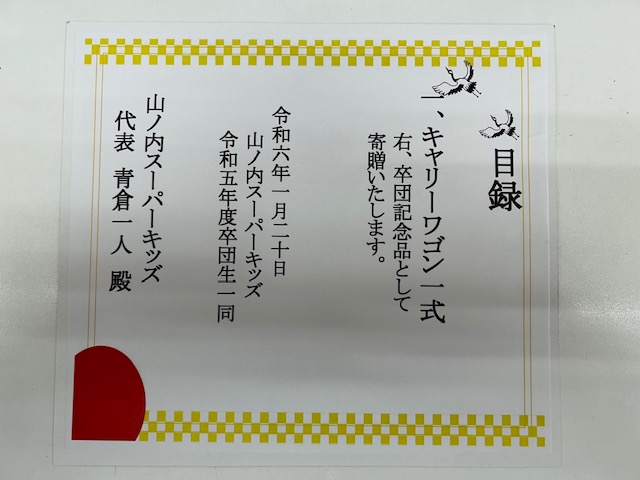 目録
一、キャリーワゴン一式
右、卒団記念品として
寄贈いたします。
令和六年一月二十日
山ノ内スーパーキッズ
令和五年度卒団生一同
山ノ内スーパーキッズ
代表 青倉一人 殿